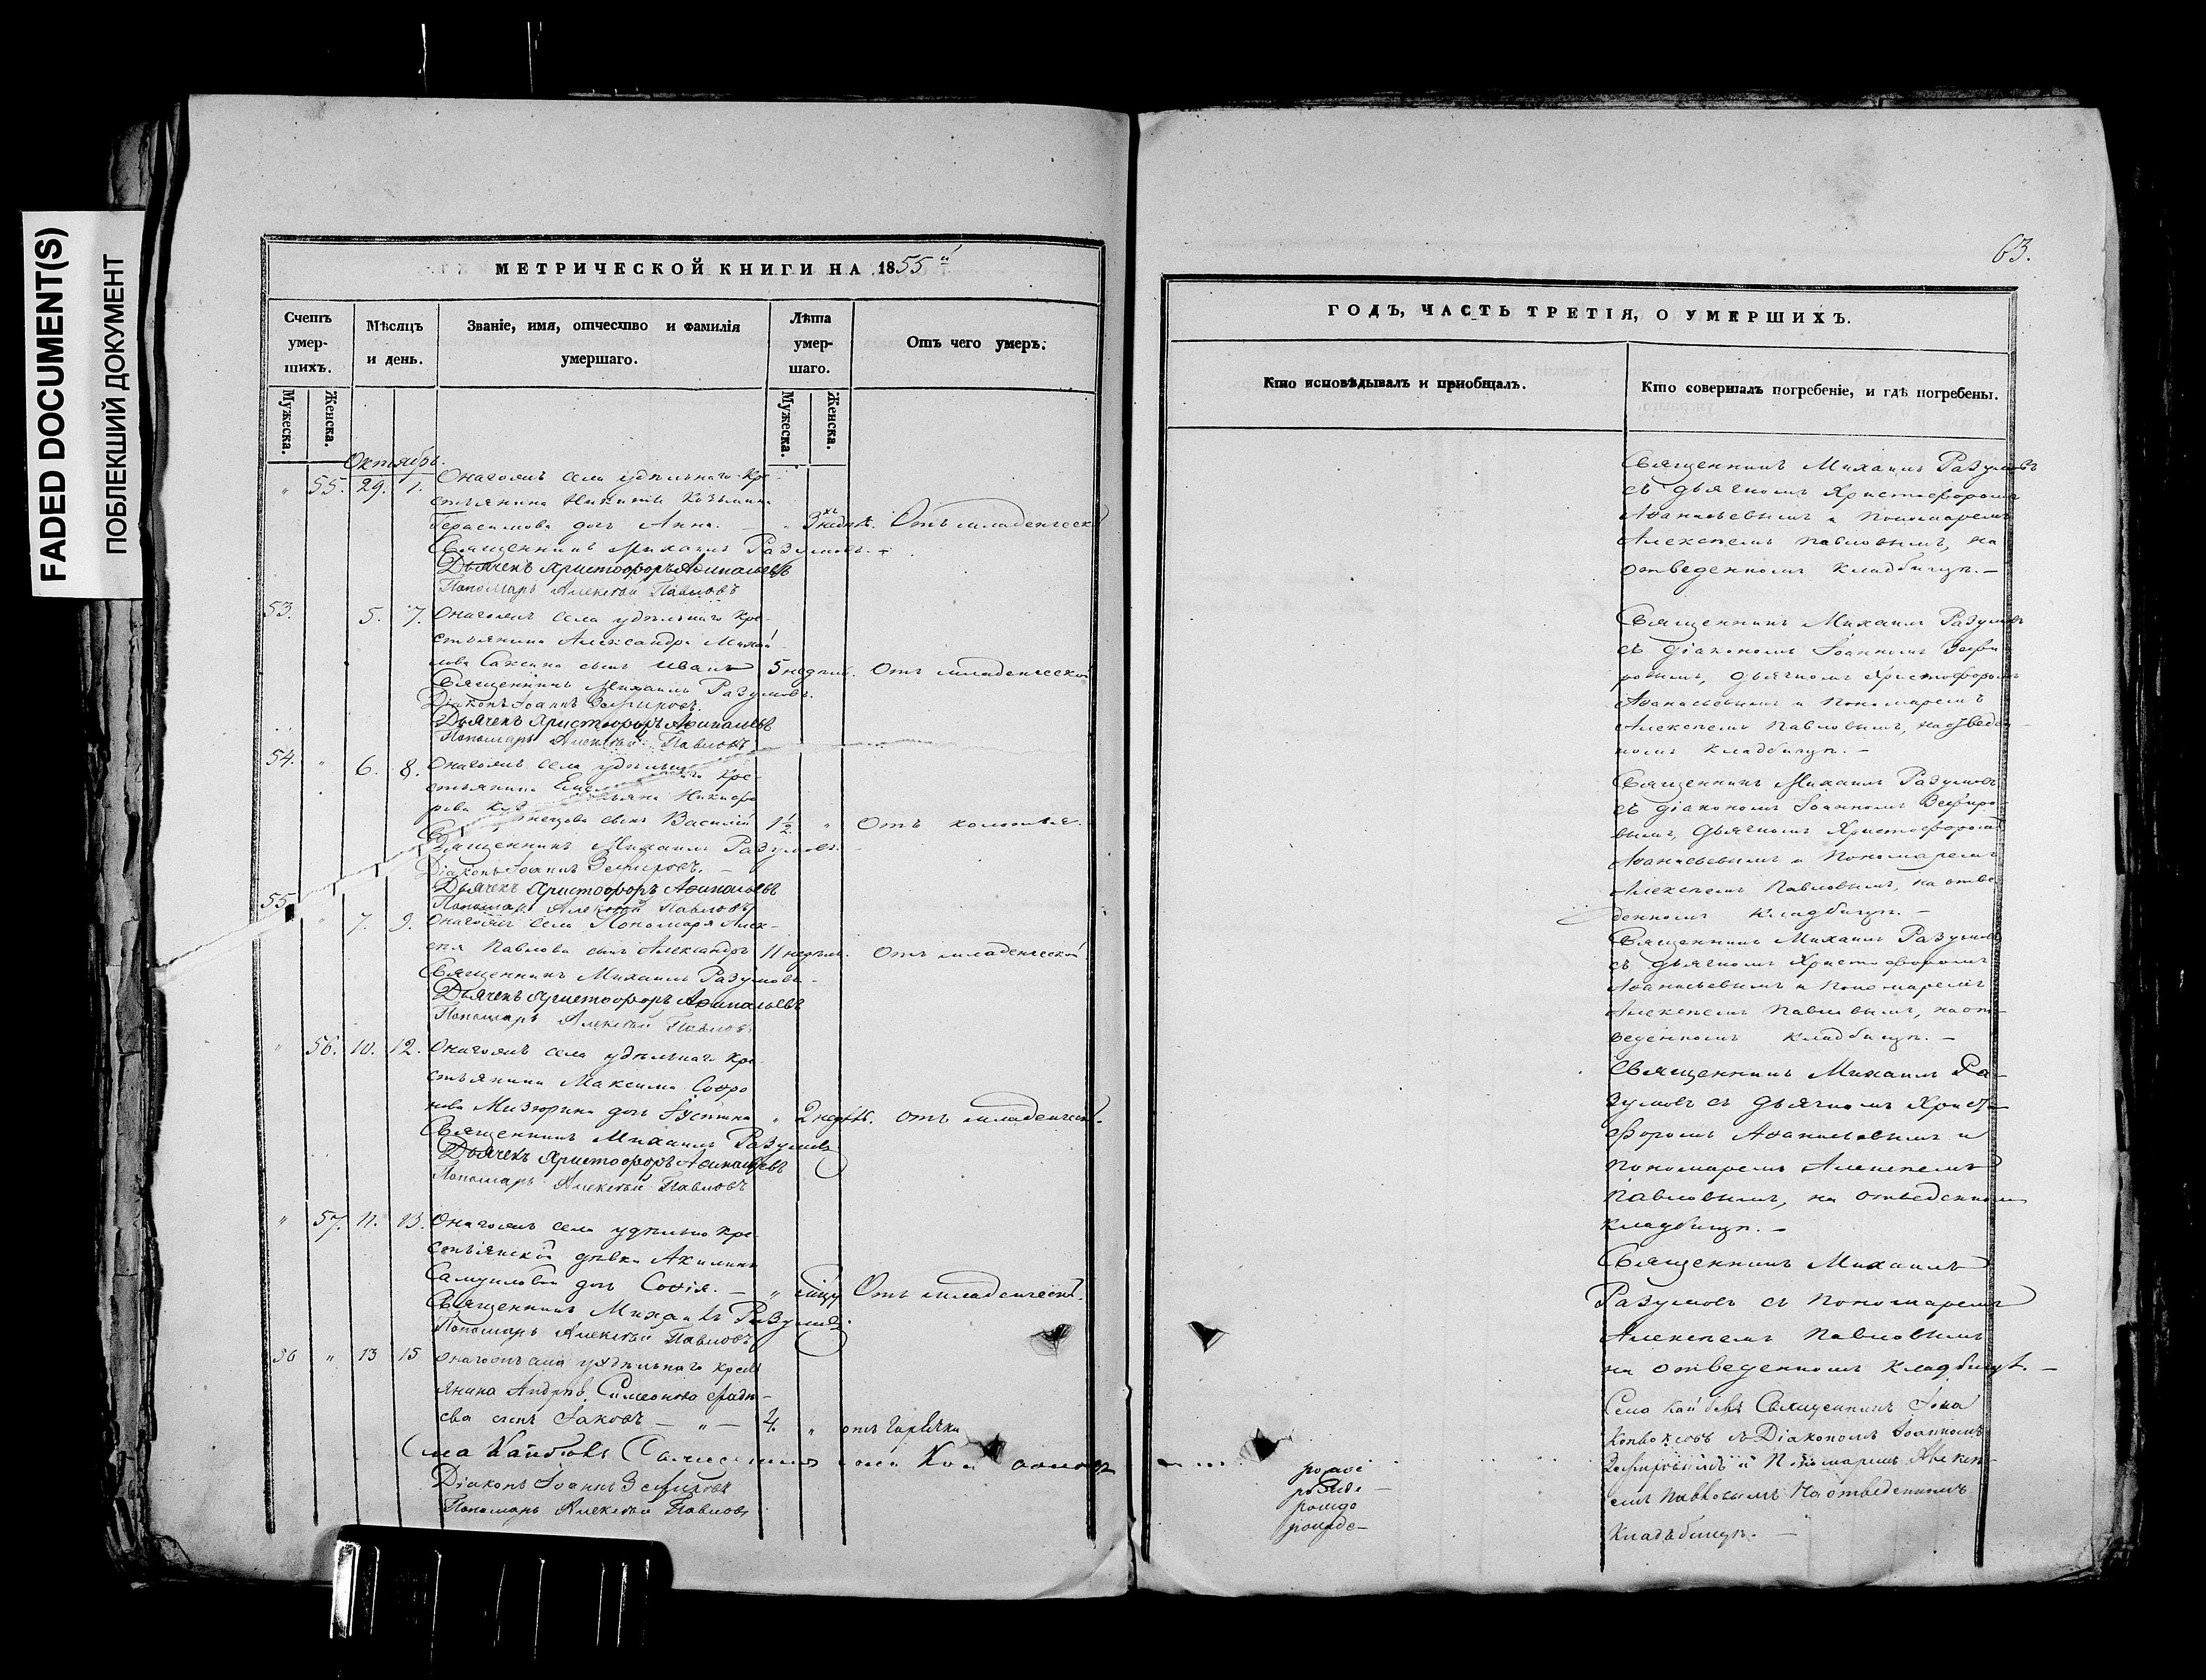 FADED DOCUMENT(S)
ПОБЛЕКШИЙ ДОКУМЕНТ
МЕТРИЧЕСКОЙ КНИГИ НА 1855й
Счетъ умер-шихъ.
Мѣсяцъ и день.
Званіе, имя, отчество и фамилія умершаго.
Лѣта умер-шаго.
Отъ чего умеръ.
Мужеска.
Женска.
Мужеска.
Женска.
Октябрь.
" 55. 29. 1. Оначомъ села удѣльнаго Кре-
стьянина Никиты Козьмина
Герасимова дочь Анна. — " 3 недѣл. Отъ младенческой
Священникъ Михаилъ Разумовъ.
Дьячекъ Христофоръ Аѳанасьевъ
Пономарь Алексѣй Павловъ
53. 5. 7. села удѣльнаго Кре-
стьянина Александра Михай
лова сынъ Иванъ 5 недѣль. Отъ младенческой
Священникъ Михаилъ Разумовъ.
Діаконъ Іоаннъ Зефировъ.
Дьячекъ Христофоръ Аѳанасьевъ
Пономарь Алексѣй Павловъ
54. " 6. 8. села удѣльнаго Кре-
стьянина Емельяна Никифо
рова Кузнецова сынъ Василій 1½ " Отъ колотья.
Священникъ Михаилъ Разумовъ.
Діаконъ Іоаннъ Зефировъ.
Дьячекъ Христофоръ Аѳанасьевъ
Пономарь Алексѣй Павловъ
55 " 7. 9. села Пономаря Алек-
сѣя Павлова сынъ Александръ 11 недѣль. Отъ младенческой
Священникъ Михаилъ Разумовъ
Дьячекъ Христофоръ Аѳанасьевъ
Пономарь Алексѣй Павловъ
" 56. 10. 12. села удѣльнаго Кре-
стьянина Максима Софро
нова Мизюрина дочь Іустина " 2 недѣл. отъ младенческ.
Священникъ Михаилъ Разумовъ
Дьячекъ Христофоръ Аѳанасьевъ
Пономарь Алексѣй Павловъ
" 57. 11. 13. села удѣльно Кре-
стьянской дѣвки Акилины
Самуиловой дочь Софія. — " Отъ младенческой.
Священникъ Михаилъ Разумовъ
Пономарь Алексѣй Павловъ
56 " 13 15 села удѣльнаго крестъ
янина Андрѣя Симеонова
сынъ Іаковъ — " — " отъ Горячки
Села Кайбелъ Священникъ Іона
Діаконъ Іоаннъ Зефировъ
Пономарь Алексѣй Павловъ
63.
ГОДЪ, ЧАСТЬ ТРЕТІЯ, О УМЕРШИХЪ.
Кто исповѣдывалъ и пріобщалъ.
Кто совершалъ погребеніе, и гдѣ погребены.
Священникъ Михаилъ Разумовъ
съ дьячкомъ Христофоромъ
Аѳанасьевымъ и Пономаремъ
Алексѣемъ Павловымъ, на
отведенномъ кладбищѣ. —
Священникъ Михаилъ Разумовъ
съ діакономъ Іоанномъ Зефи
ровымъ, дьячкомъ Христофоромъ
Аѳанасьевымъ и Пономаремъ
Алексѣемъ Павловымъ, на отведен
номъ кладбищѣ. —
Священникъ Михаилъ Разумовъ
съ діакономъ Іоанномъ Зефиро
вымъ, дьячкомъ Христофоромъ
Аѳанасьевымъ и Пономаремъ
Алексѣемъ Павловымъ, на отве
денномъ кладбищѣ. —
Священникъ Михаилъ Разумовъ
съ дьячкомъ Христофоромъ
Аѳанасьевымъ и Пономаремъ
Алексѣемъ Павловымъ, на от-
веденномъ кладбищѣ. —
Священникъ Михаилъ Ра-
зумовъ съ дьячкомъ Христо
форомъ Аѳанасьевымъ и
пономаремъ Алексѣемъ
Павловымъ, на отведенномъ
кладбищѣ. —
Священникъ Михаилъ
Разумовъ съ Пономаремъ
Алексѣемъ Павловымъ
на отведенномъ кладбищѣ. —
Села Кайбелъ Священникъ Іона
съ Діакономъ Іоанномъ
Зефировымъ и Пономаремъ Алексѣ-
емъ Павловымъ На отведенномъ
Кладъбищѣ. —